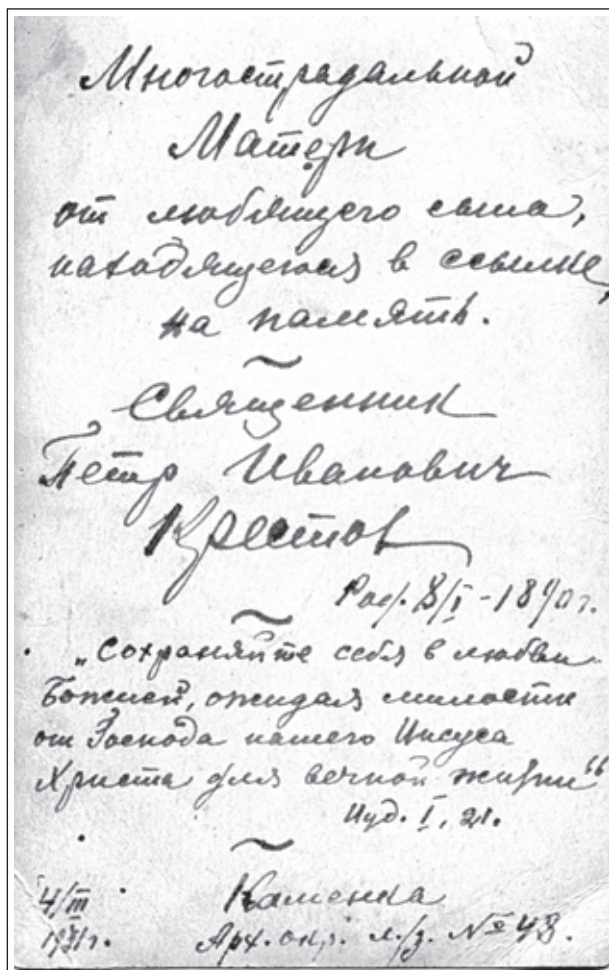 Многострадальной
Матери
от любящего сына,
находящегося в ссылке,
на память.
Священник
Петр Иванович
Крестов
8/I - 18 г.
„Сохраняйте себя в любви
Божией, ожидая милости
от Господа нашего Иисуса
Христа для вечной жизни“
Иуд. I, 21.
4/III Каменка
Арх. окр. л./з. № 48.